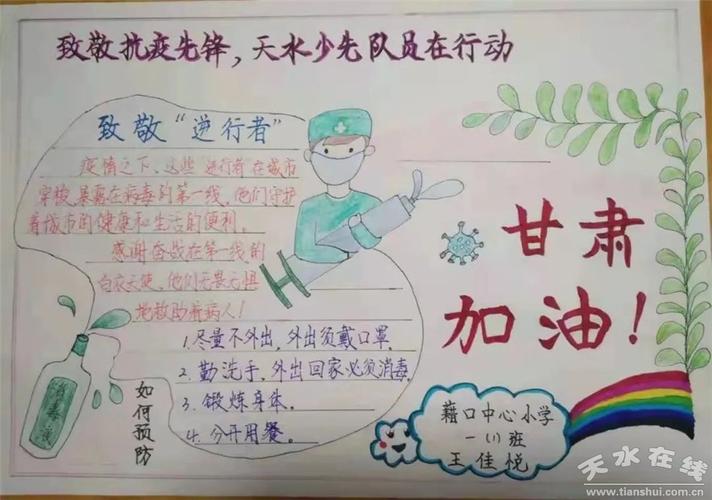 致敬抗疫先锋，天水少先队员在行动
致敬“逆行者”
疫情之下，这些逆行者在城市
穿梭，暴露在病毒的第一线，他们守护
着城市的健康和生活的便利。
感谢奋战在第一线的
白衣天使，他们无畏无惧
地救助着病人！
1.尽量不外出，外出须戴口罩。
2.勤洗手，外出回家必须消毒。
3.锻炼身体。
4.分开用餐。
如何预防
消毒液
甘肃
加油！
藉口中心小学
一(1)班
王佳悦
天水在线
www.tianshui.com.cn